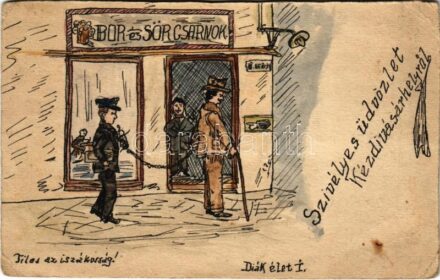 BOR és SÖR CSARNOK
Szivélyes üdvözlet
Kézdivásárhelyről
Tilos az iszákosság!
Diák élet I.